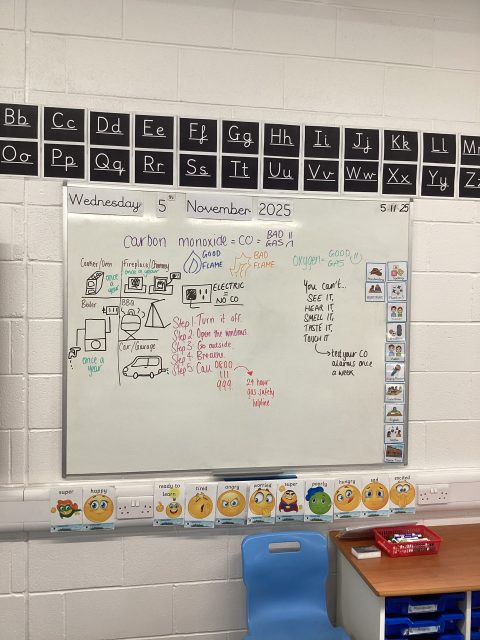 Bb Cc Dd Ee Ff Gg Hh Ii Jj Kk Ll
Oo Pp Qq Rr Ss Tt Uu Vv Ww Xx Yy
Wednesday 5 November 2025
5 11 25
carbon monoxide = CO = BAD GAS
GOOD FLAME
BAD FLAME
oxygen = GOOD GAS
Cooker/Oven
once a year
Fireplace/Chimney
once a year
ELECTRIC
NO CO
Boiler
once a year
BBQ
Car/Garage
Step 1 Turn it off.
Step 2 Open the windows.
Step 3 Go outside
Step 4 Breathe.
Step 5 Call 0800
111
999
24 hour
gas safety
helpline
You can't...
SEE IT,
HEAR IT,
SMELL IT,
TASTE IT,
TOUCH IT
test your CO
alarms once
a week
super
happy
ready to learn
tired
angry
worried
super
poorly
hungry
sad
excited